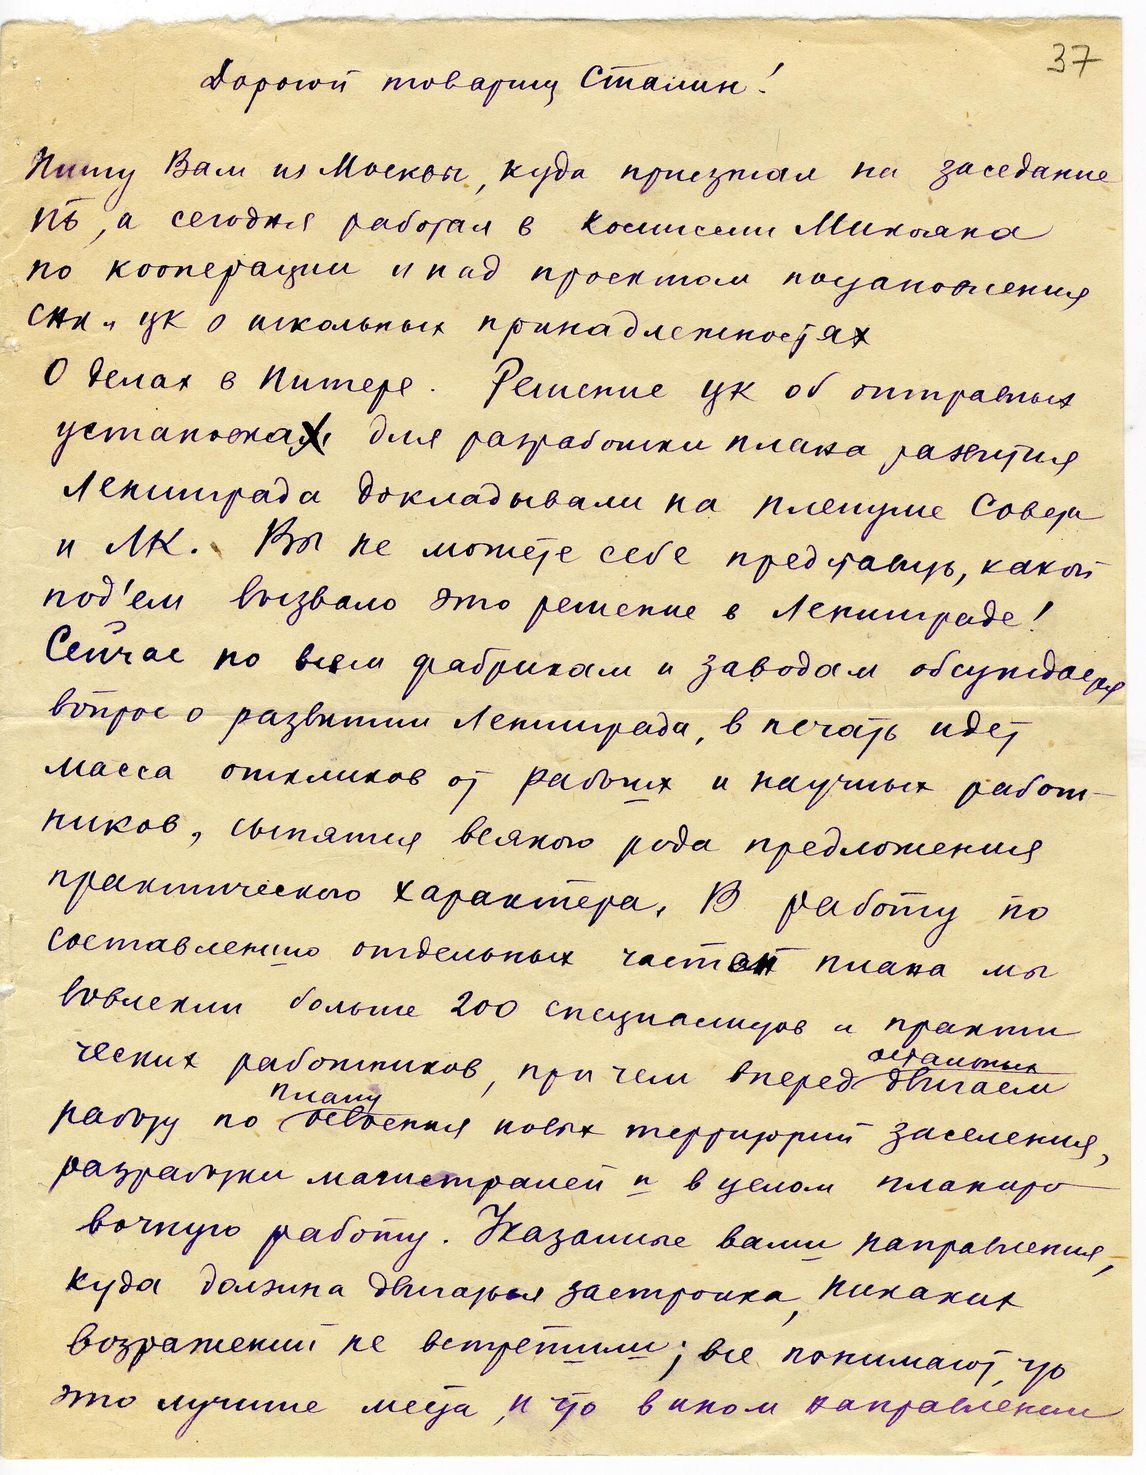 37
Дорогой товарищ Сталин!
Пишу Вам из Москвы, куда приезжал на заседание
ПБ, а сегодня работал в комиссии Микояна
по кооперации и над проектом постановления
СНК и ЦК о школьных принадлежностях
О делах в Питере. Решение ЦК об отправных
установках для разработки плана развития
Ленинграда докладывали на пленуме Совета
и ЛК. Вы не можете себе представить, какой
под'ем вызвало это решение в Ленинграде!
Сейчас по всем фабрикам и заводам обсуждается
вопрос о развитии Ленинграда, в печать идет
масса откликов от рабочих и научных работ-
ников, сыпятся всякого рода предложения
практического характера. В работу по
составлению отдельных частей плана мы
вовлекли больше 200 специалистов и практи
ческих работников, при чем вперед остальных двигаем
работу по плану освоения новых территорий заселения,
разработки магистралей и в целом планиро
вочную работу. Указанные вами направления,
куда должна двигаться застройка, никаких
возражений не встретили; все понимают, что
это лучшие места, и что в ином направлении